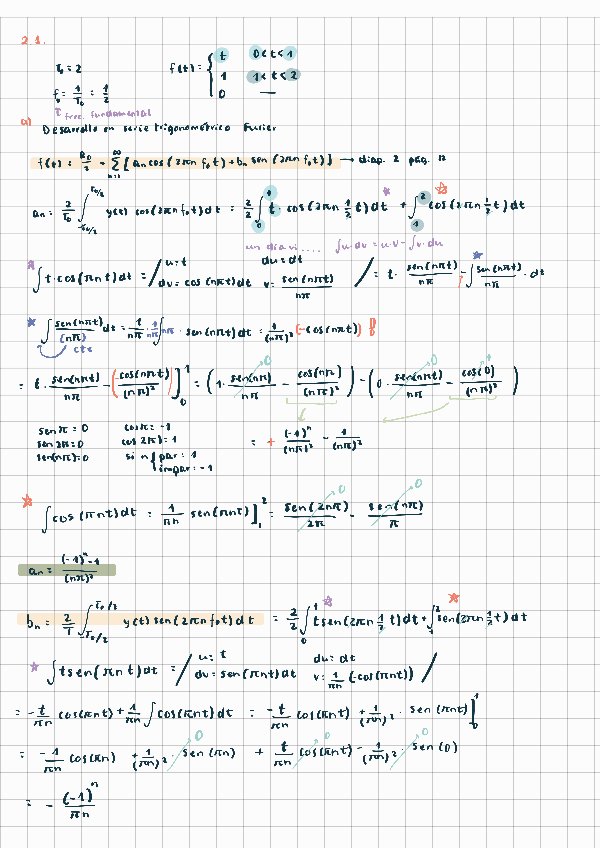 2.1.
T₀ = 2    f(t) = { t    0 < t < 1
1    1 < t < 2
0    —
f₀ = 1/T₀ = 1/2
↑ frec. fundamental
a) Desarrollo en serie trigonométrica Fourier
f(t) = a₀/2 + ∑_{n=1}^{∞} [an cos(2πn f₀t) + bn sen(2πn f₀t)] → diap. 2 pág. 12
an = 2/T₀ ∫_{-T₀/2}^{T₀/2} y(t) cos(2πn f₀t) dt = 2/2 ∫_0^1 t · cos(2πn 1/2 t) dt + ∫_1^2 cos(2πn 1/2 t) dt
un día vi .... ∫u·dv = u·v - ∫v·du
∫ t · cos(πnt) dt = / u = t    du = dt
dv = cos(nπt) dt    v = sen(nπt)/nπ / = t · sen(nπt)/nπ - ∫ sen(nπt)/nπ · dt
∫ sen(nπt)/(nπ) dt = 1/nπ · 1/nπ ∫ nπ · sen(nπt) dt = 1/(nπ)² (-cos(nπt)) !!
cte
= t · sen(nπt)/nπ - (-cos(nπt)/(nπ)²) ]_0^1 = (1 · sen(nπ)/nπ - cos(nπ)/(nπ)²) - (0 · sen(nπt)/nπ - cos(0)/(nπ)²)
sen π = 0    cos π = -1
sen 2π = 0    cos 2π = 1    = + (-1)ⁿ/(nπ)² - 1/(nπ)²
sen(nπ) = 0    si n { par = 1
impar = -1
∫ cos(πnt) dt = 1/πn sen(πnt) ]_1^2 = sen(2nπ)/2π - sen(nπ)/π
an = (-1)ⁿ - 1/(nπ)²
bn = 2/T ∫_{-T₀/2}^{T₀/2} y(t) sen(2πn f₀t) dt = 2/2 ∫_0^1 t sen(2πn 1/2 t) dt + ∫_1^2 sen(2πn 1/2 t) dt
∫ t sen(πnt) dt = / u = t    du = dt
dv = sen(πnt) dt    v = 1/πn (-cos(πnt)) /
= -t/πn cos(πnt) + 1/πn ∫ cos(πnt) dt = -t/πn cos(πnt) + 1/(πn)² · sen(πnt) ]_0^1
= -1/πn cos(πn) + 1/(πn)² · sen(πn) + t/πn cos(πnt) - 1/(πn)² · sen(0)
= - (-1)ⁿ/πn